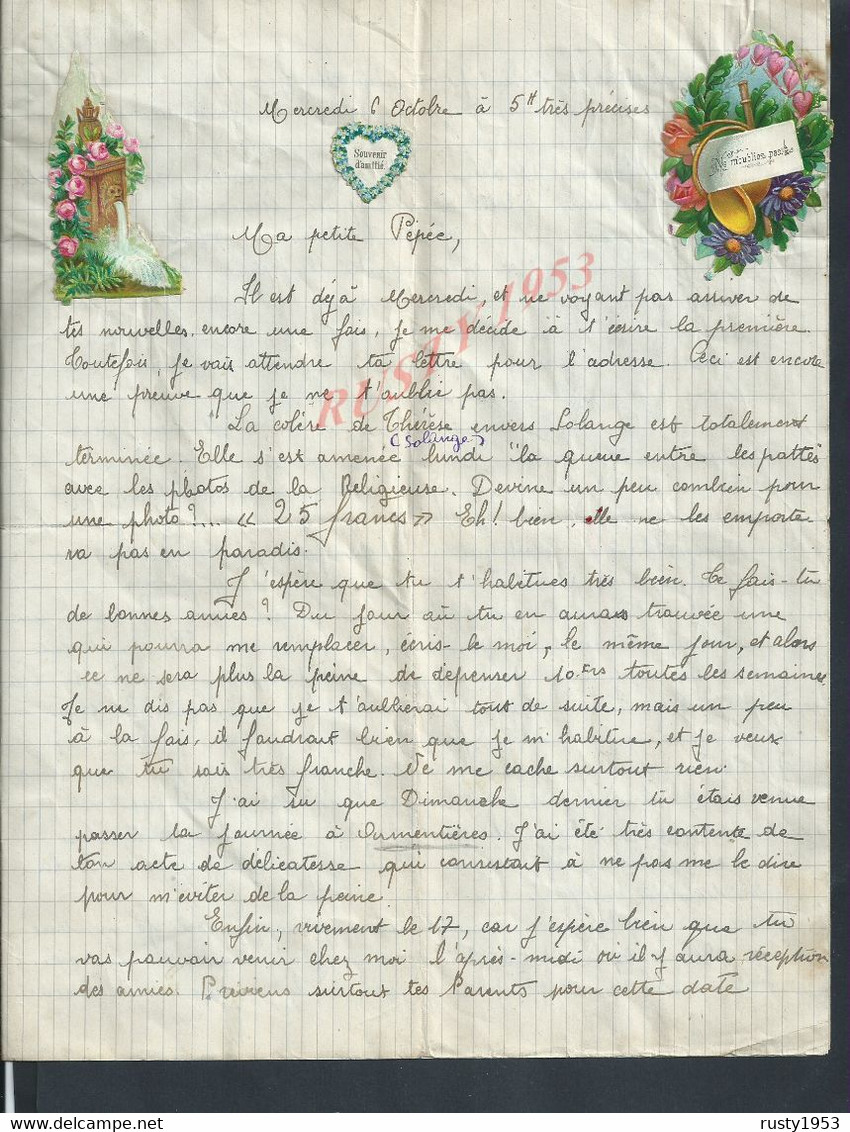 Mercredi 6 Octobre à 5H très précises
Souvenir
d'amitié
Ne m'oubliez pas!
Ma petite Pépée,
RUSTY 1953
Il est déjà Mercredi, et ne voyant pas arriver de
tes nouvelles encore une fois, je me décide à t'écrire la première.
Toutefois, je vais attendre ta lettre pour l'adresse. Ceci est encore
une preuve que je ne t'oublie pas.
La colère de Thérèse envers Solange est totalement
(Solange)
terminée. Elle s'est amenée lundi "la queue entre les pattes
avec les photos de la Religieuse. Devine un peu combien pour
une photo?... « 25 francs » Eh! bien, elle ne les emporte
ra pas en paradis.
J'espère que tu t'habitues très bien. Te fais-tu
de bonnes amies? Du jour où tu en auras trouvée une
qui pourra me remplacer, écris-le moi, le même jour, et alors
ce ne sera plus la peine de dépenser 10.Frs toutes les semaines
Je ne dis pas que je t'oublierai tout de suite, mais un peu
à la fois, il faudrait bien que je m'habitue, et je veux
que tu sois très franche. Ne me cache surtout rien.
J'ai su que Dimanche dernier tu étais venue
passer ta journée à Armentières. J'ai été très contente de
ton acte de délicatesse qui consistait à ne pas me le dire
pour m'éviter de la peine.
Enfin, vivement le 17, car j'espère bien que tu
vas pouvoir venir chez moi l'après-midi où il y aura réception
des amies. Préviens surtout tes Parents pour cette date
rusty1953